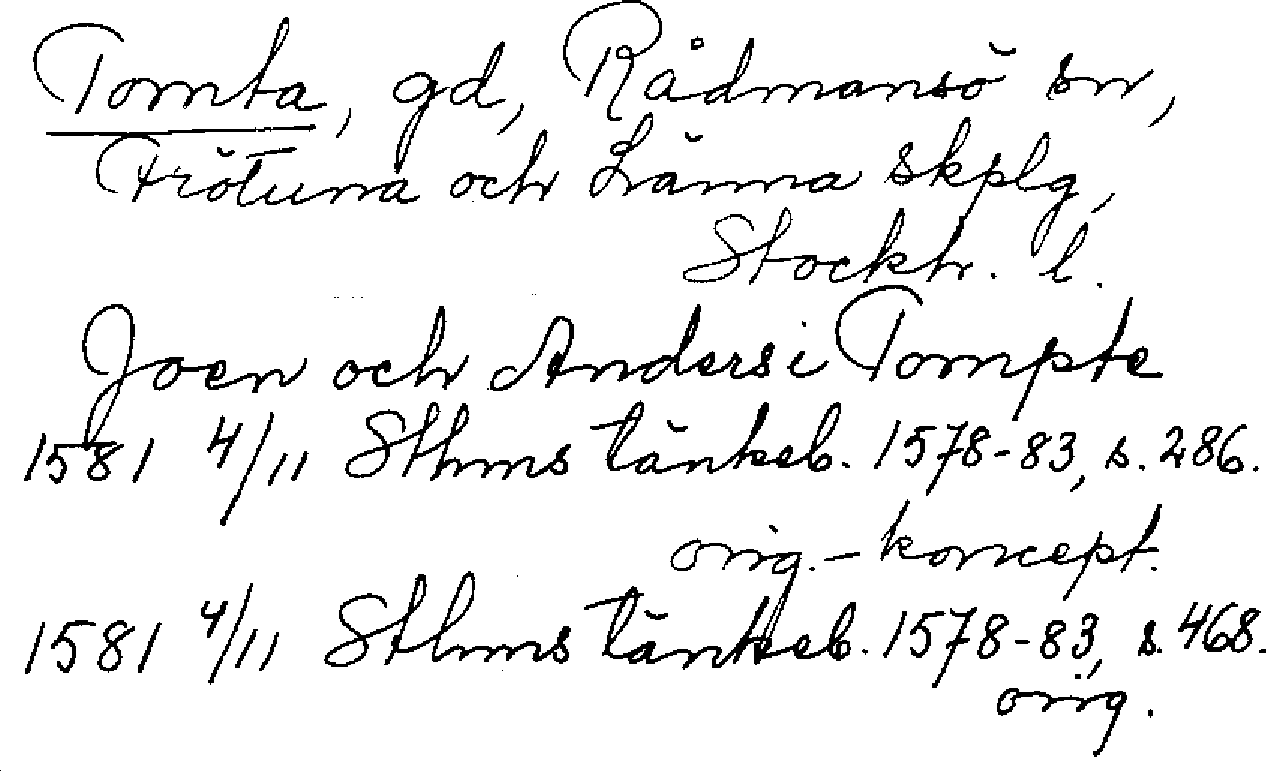 Tomta, gd, Rådmansö sn,
Frötuna och Länna skplg,
Stockh. l.
Joen och Anders i Tompte
1581 4/11 Sthms tänkeb. 1578-83, s. 286.
orig.-koncept.
1581 4/11 Sthms tänkeb. 1578-83, s. 468.
orig.